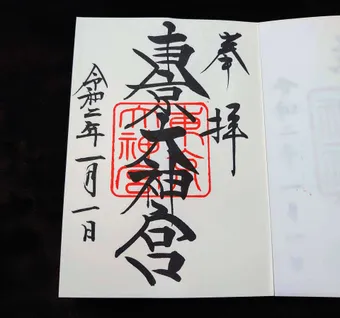 奉拝
東京大神宮
令和二年一月一日
東京
大神宮